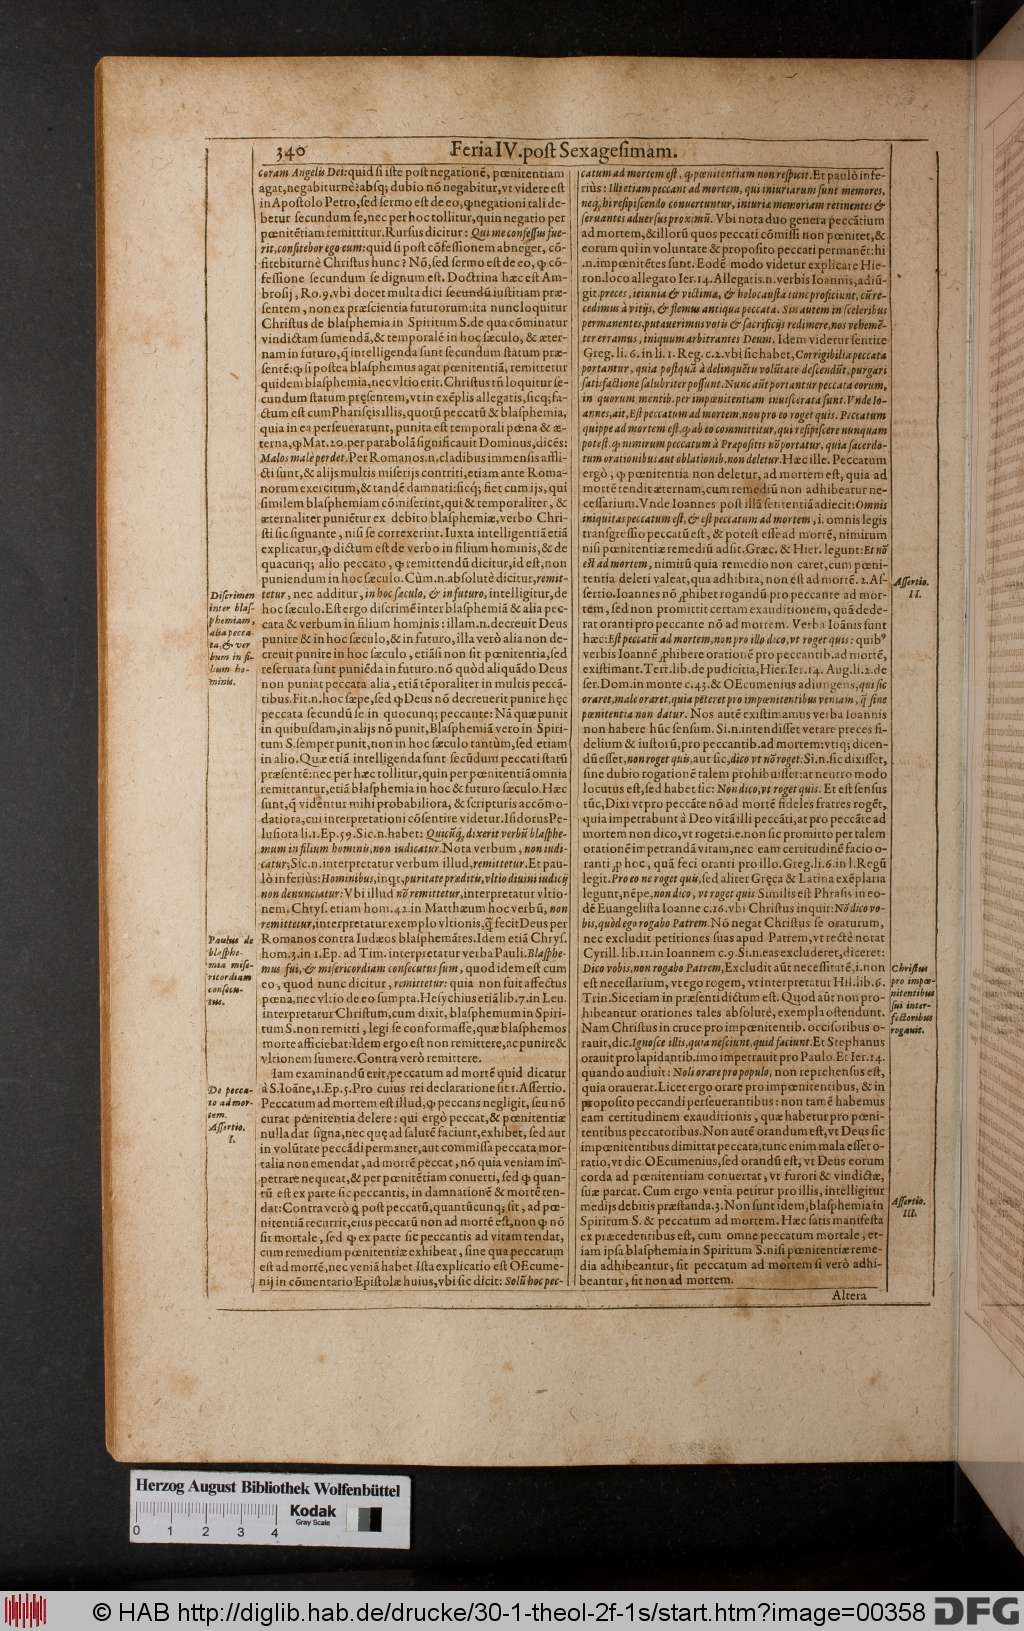 340
Feria IV. post Sexagesimam.
coram Angelis Dei: quid si iste post negationē, pœnitentiam
agat, negabiturnè? absq; dubio nō negabitur, vt videre est
in Apostolo Petro, sed sermo est de eo, ꝙ negationi tali de-
betur secundum se, nec per hoc tollitur, quin negatio per
pœnitētiam remittitur. Rursus dicitur: Qui me confessus fue-
rit, confitebor ego eum: quid si post cōfessionem abneget, cō-
fitebiturnè Christus hunc? Nō, sed sermo est de eo, ꝙ cō-
fessione secundum se dignum est. Doctrina hæc est Am-
brosij, Ro. 9. vbi docet multa dici secundū iustitiam præ-
sentem, non ex præscientia futurorum: ita nunc loquitur
Christus de blasphemia in Spiritum S. de qua cōminatur
vindictam sumendā, & temporalē in hoc sæculo, & æter-
nam in futuro, q̃ intelligenda sunt secundum statum præ-
sentē: ꝙ si postea blasphemus agat pœnitentiā, remittetur
quidem blasphemia, nec vltio erit. Christus tñ loquitur se-
cundum statum pręsentem, vt in exēplis allegatis, sicq; fa-
ctum est cum Pharisęis illis, quorū peccatū & blasphemia,
quia in ea perseuerarunt, punita est temporali pœna & æ-
terna, ꝙ Mat. 20. per parabolā significauit Dominus, dicēs:
Malos malè perdet. Per Romanos .n. cladibus immensis affli-
cti sunt, & alijs multis miserijs contriti, etiam ante Roma-
norum exercitum, & tandē damnati: sicq; fiet cum ijs, qui
similem blasphemiam cōmiserint, qui & temporaliter, &
æternaliter puniētur ex debito blasphemiæ, verbo Chri-
sti sic signante, nisi se correxerint. Iuxta intelligentiā etiā
explicatur, ꝙ dictum est de verbo in filium hominis, & de
quacunq; alio peccato, ꝙ remittendū dicitur, id est, non
puniendum in hoc sæculo. Cùm .n. absolutè dicitur, remit-
tetur, nec additur, in hoc sæculo, & in futuro, intelligitur, de
hoc sæculo. Est ergo discrimē inter blasphemiā & alia pec-
cata & verbum in filium hominis: illam .n. decreuit Deus
punire & in hoc sæculo, & in futuro, illa verò alia non de-
creuit punire in hoc sæculo, etiāsi non sit pœnitentia, sed
reseruata sunt puniēda in futuro. nō quòd aliquādo Deus
non puniat peccata alia, etiā tēporaliter in multis peccā-
tibus. Fit .n. hoc sæpe, sed ꝙ Deus nō decreuerit punire hęc
peccata secundū se in quocunq; peccante: Nā quæ punit
in quibusdam, in alijs nō punit, Blasphemiā vero in Spiri-
tum S. semper punit, non in hoc sæculo tantùm, sed etiam
in alio. Quæ etiā intelligenda sunt secūdum peccati statū
præsentē: nec per hæc tollitur, quin per pœnitentiā omnia
remittantur, etiā blasphemia in hoc & futuro sæculo. Hæc
sunt, q̃ videntur mihi probabiliora, & scripturis accōmo-
datiora, cui interpretationi cōsentire videtur. Isidorus Pe-
lusiota li. 1. Ep. 59. Sic .n. habet: Quicūq; dixerit verbū blasphe-
mum in filium hominis, non iudicatur. Nota verbum, non iudi-
catur; Sic .n. interpretatur verbum illud, remittetur. Et pau-
lò inferiùs: Hominibus, inqt, puritate præditis, vltio diuini iudicij
non denunciatur: Vbi illud nō remittetur, interpretatur vltio-
nem. Chrys. etiam hom. 42. in Matthæum hoc verbū, non
remittetur, interpretatur exemplo vltionis, q̃ fecit Deus per
Romanos contra Iudæos blasphemātes. Idem etiā Chrys.
hom. 3. in 1. Ep. ad Tim. interpretatur verba Pauli. Blasphe-
mus fui, & misericordiam consecutus sum, quod idem est cum
eo, quod nunc dicitur, remittetur: quia non fuit affectus
pœna, nec vltio de eo sumpta. Hesychius etiā lib. 7. in Leu.
interpretatur Christum, cum dixit, blasphemum in Spiri-
tum S. non remitti, legi se conformasse, quæ blasphemos
morte afficiebat: Idem ergo est non remittere, ac punire &
vltionem sumere. Contra verò remittere.
Iam examinandū erit, peccatum ad mortē quid dicatur
à S. Ioāne, 1. Ep. 5. Pro cuius rei declaratione sit 1. Assertio.
Peccatum ad mortem est illud, ꝙ peccans negligit, seu nō
curat pœnitentia delere: qui ergò peccat, & pœnitentiæ
nulla dat signa, nec quę ad salutē faciunt, exhibet, sed aut
in volūtate peccādi permanet, aut commissa peccata mor-
talia non emendat, ad mortē peccat, nō quia veniam im-
petrare nequeat, & per pœnitētiam conuerti, sed ꝙ quan-
tū est ex parte sic peccantis, in damnationē & mortē ten-
dat: Contra verò q̃ post peccatū, quantūcunq; sit, ad pœ-
nitentiā recurrit, eius peccatū non ad mortē est, non ꝙ nō
sit mortale, sed ꝙ ex parte sic peccantis ad vitam tendat,
cum remedium pœnitentiæ exhibeat, sine qua peccatum
est ad mortē, nec veniā habet. Ista explicatio est OEcume-
nij in cōmentario Epistolæ huius, vbi sic dicit: Solū hoc pec-
Discrimen
inter blas-
phemiam,
alia pecca-
ta, & ver
bum in fi-
lium ho-
minis.
Paulus de
blasphe-
mia mise-
ricordiam
consecu-
tus.
De pecca-
to ad mor-
tem.
Assertio.
I.
catum ad mortem est, q. pœnitentiam non respicit. Et paulò infe-
riùs: Illi etiam peccant ad mortem, qui iniuriarum sunt memores,
neq; hi resipiscendo conuertuntur, iniuriæ memoriam retinentes &
seruantes aduersus proximū. Vbi nota duo genera peccātium
ad mortem, & illorū quos peccati cōmissi non pœnitet, &
eorum qui in voluntate & proposito peccati permanēt: hi
.n. impœnitētes sunt. Eodē modo videtur explicare Hie-
ron. loco allegato Ier. 14. Allegatis .n. verbis Ioannis, adiū-
git. preces, ieiunia & victimæ, & holocausta tunc proficiunt, cū re-
cedimus à vitijs, & flemus antiqua peccata. Sin autem in sceleribus
permanentes, putauerimus votis & sacrificijs redimere, nos vehemē-
ter erramus, iniquum arbitrantes Deum. Idem videtur sentire
Greg. li. 6. in li. 1. Reg. c. 2. vbi sic habet, Corrigibilia peccata
portantur, quia postquā à delinquētū volūtate descendūt, purgari
satisfactione salubriter possunt. Nunc aūt portantur peccata eorum,
in quorum mentib. per impœnitentiam inuiscerata sunt. Vnde Io-
annes, ait, Est peccatum ad mortem, non pro eo roget quis. Peccatum
quippe ad mortem est, ꝙ ab eo committitur, qui resipiscere nunquam
potest. ꝙ nimirum peccatum à Præpositis nō portatur, quia sacerdo-
tum orationibus aut oblationib. non deletur. Hæc ille. Peccatum
ergò, ꝙ pœnitentia non deletur, ad mortem est, quia ad
mortē tendit æternam, cum remediū non adhibeatur ne-
cessarium. Vnde Ioannes post illā sententiā adiecit: Omnis
iniquitas peccatum est, & est peccatum ad mortem, i. omnis legis
transgressio peccatū est, & potest esse ad mortē, nimirum
nisi pœnitentiæ remediū adsit. Græc. & Hier. legunt: Et nō
est ad mortem, nimirū quia remedio non caret, cum pœni-
tentia deleri valeat, qua adhibita, non est ad mortē. 2. As-
sertio. Ioannes nō ꝓhibet rogandū pro peccante ad mor-
tem, sed non promittit certam exauditionem, quā dede-
rat oranti pro peccante nō ad mortem. Verba Ioānis sunt
hæc: Est peccatū ad mortem, non pro illo dico, vt roget quis: quibꝰ
verbis Ioannē ꝓhibere orationē pro peccantib. ad mortē,
existimant. Tert. lib. de pudicitia, Hier. Ier. 14. Aug. li. 2. de
ser. Dom. in monte c. 43. & OEcumenius adiungens, qui sic
oraret, male oraret, quia pēteret pro impœnitentibus veniam, q̃ sine
pœnitentia non datur. Nos autē existimamus verba Ioannis
non habere hūc sensum. Si .n. intendisset vetare preces fi-
delium & iustorū, pro peccantib. ad mortem: vtiq; dicen-
dū esset, non roget quis, aut sic, dico vt nō roget. Si .n. sic dixisset,
sine dubio rogationē talem prohibuisset: at neutro modo
locutus est, sed habet sic: Non dico, vt roget quis. Et est sensus
tūc, Dixi vt pro peccāte nō ad mortē fideles fratres rogēt,
quia impetrabunt à Deo vitā illi peccāti, at pro peccāte ad
mortem non dico, vt roget: i. e. non sic promitto per talem
orationē impetrandā vitam, nec eam certitudinē facio o-
ranti ꝓ hoc, quā feci oranti pro illo. Greg. li. 6. in l. Regū
legit. Pro eo nc roget quis, sed aliter Gręca & Latina exēplaria
legunt, nēpe, non dico, vt roget quis Similis est Phrasis in eo-
dē Euangelista Ioanne c. 16. vbi Christus inquit: Nō dico vo-
bis, quòd ego rogabo Patrem. Nō negat Christus se oraturum,
nec excludit petitiones suas apud Patrem, vt rectè notat
Cyrill. lib. 11. in Ioannem c. 9. Si .n. eas excluderet, diceret:
Dico vobis, non rogabo Patrem, Excludit aūt necessitatē, i. non
est necessarium, vt ego rogem, vt interpretatur Hil. lib. 6.
Trin. Sic etiam in præsenti dictum est. Quod aūt non pro-
hibeantur orationes tales absolutè, exempla ostendunt.
Nam Christus in cruce pro impœnitentib. occisoribus o-
rauit, dic. Ignosce illis, quia nesciunt, quid faciunt. Et Stephanus
orauit pro lapidantib. imo impetrauit pro Paulo. Et Ier. 14.
quando audiuit: Noli orare pro populo, non reprehensus est,
quia orauerat. Licet ergo orare pro impœnitentibus, & in
proposito peccandi perseuerantibus: non tamē habemus
eam certitudinem exauditionis, quæ habetur pro pœni-
tentibus peccatoribus. Non autē orandum est, vt Deus sic
impœnitentibus dimittat peccata, tunc enim mala esset o-
ratio, vt dic. OEcumenius, sed orandū est, vt Deus eorum
corda ad pœnitentiam conuertat, vt furori & vindictæ,
suæ parcat. Cum ergo venia petitur pro illis, intelligitur
medijs debitis præstanda. 3. Non sunt idem, blasphemia in
Spiritum S. & peccatum ad mortem. Hæc satis manifesta
ex præcedentibus est, cum omne peccatum mortale, et-
iam ipsa blasphemia in Spiritum S. nisi pœnitentiæ reme-
dia adhibeantur, sit peccatum ad mortem si verò adhi-
beantur, sit non ad mortem.
Assertio.
II.
Christus
pro impœ-
nitentibus
sui inter-
fectoribus
rogauit.
Assertio.
III.
Altera
Herzog August Bibliothek Wolfenbüttel
Kodak
Gray Scale
0 1 2 3 4
© HAB http://diglib.hab.de/drucke/30-1-theol-2f-1s/start.htm?image=00358
DFG